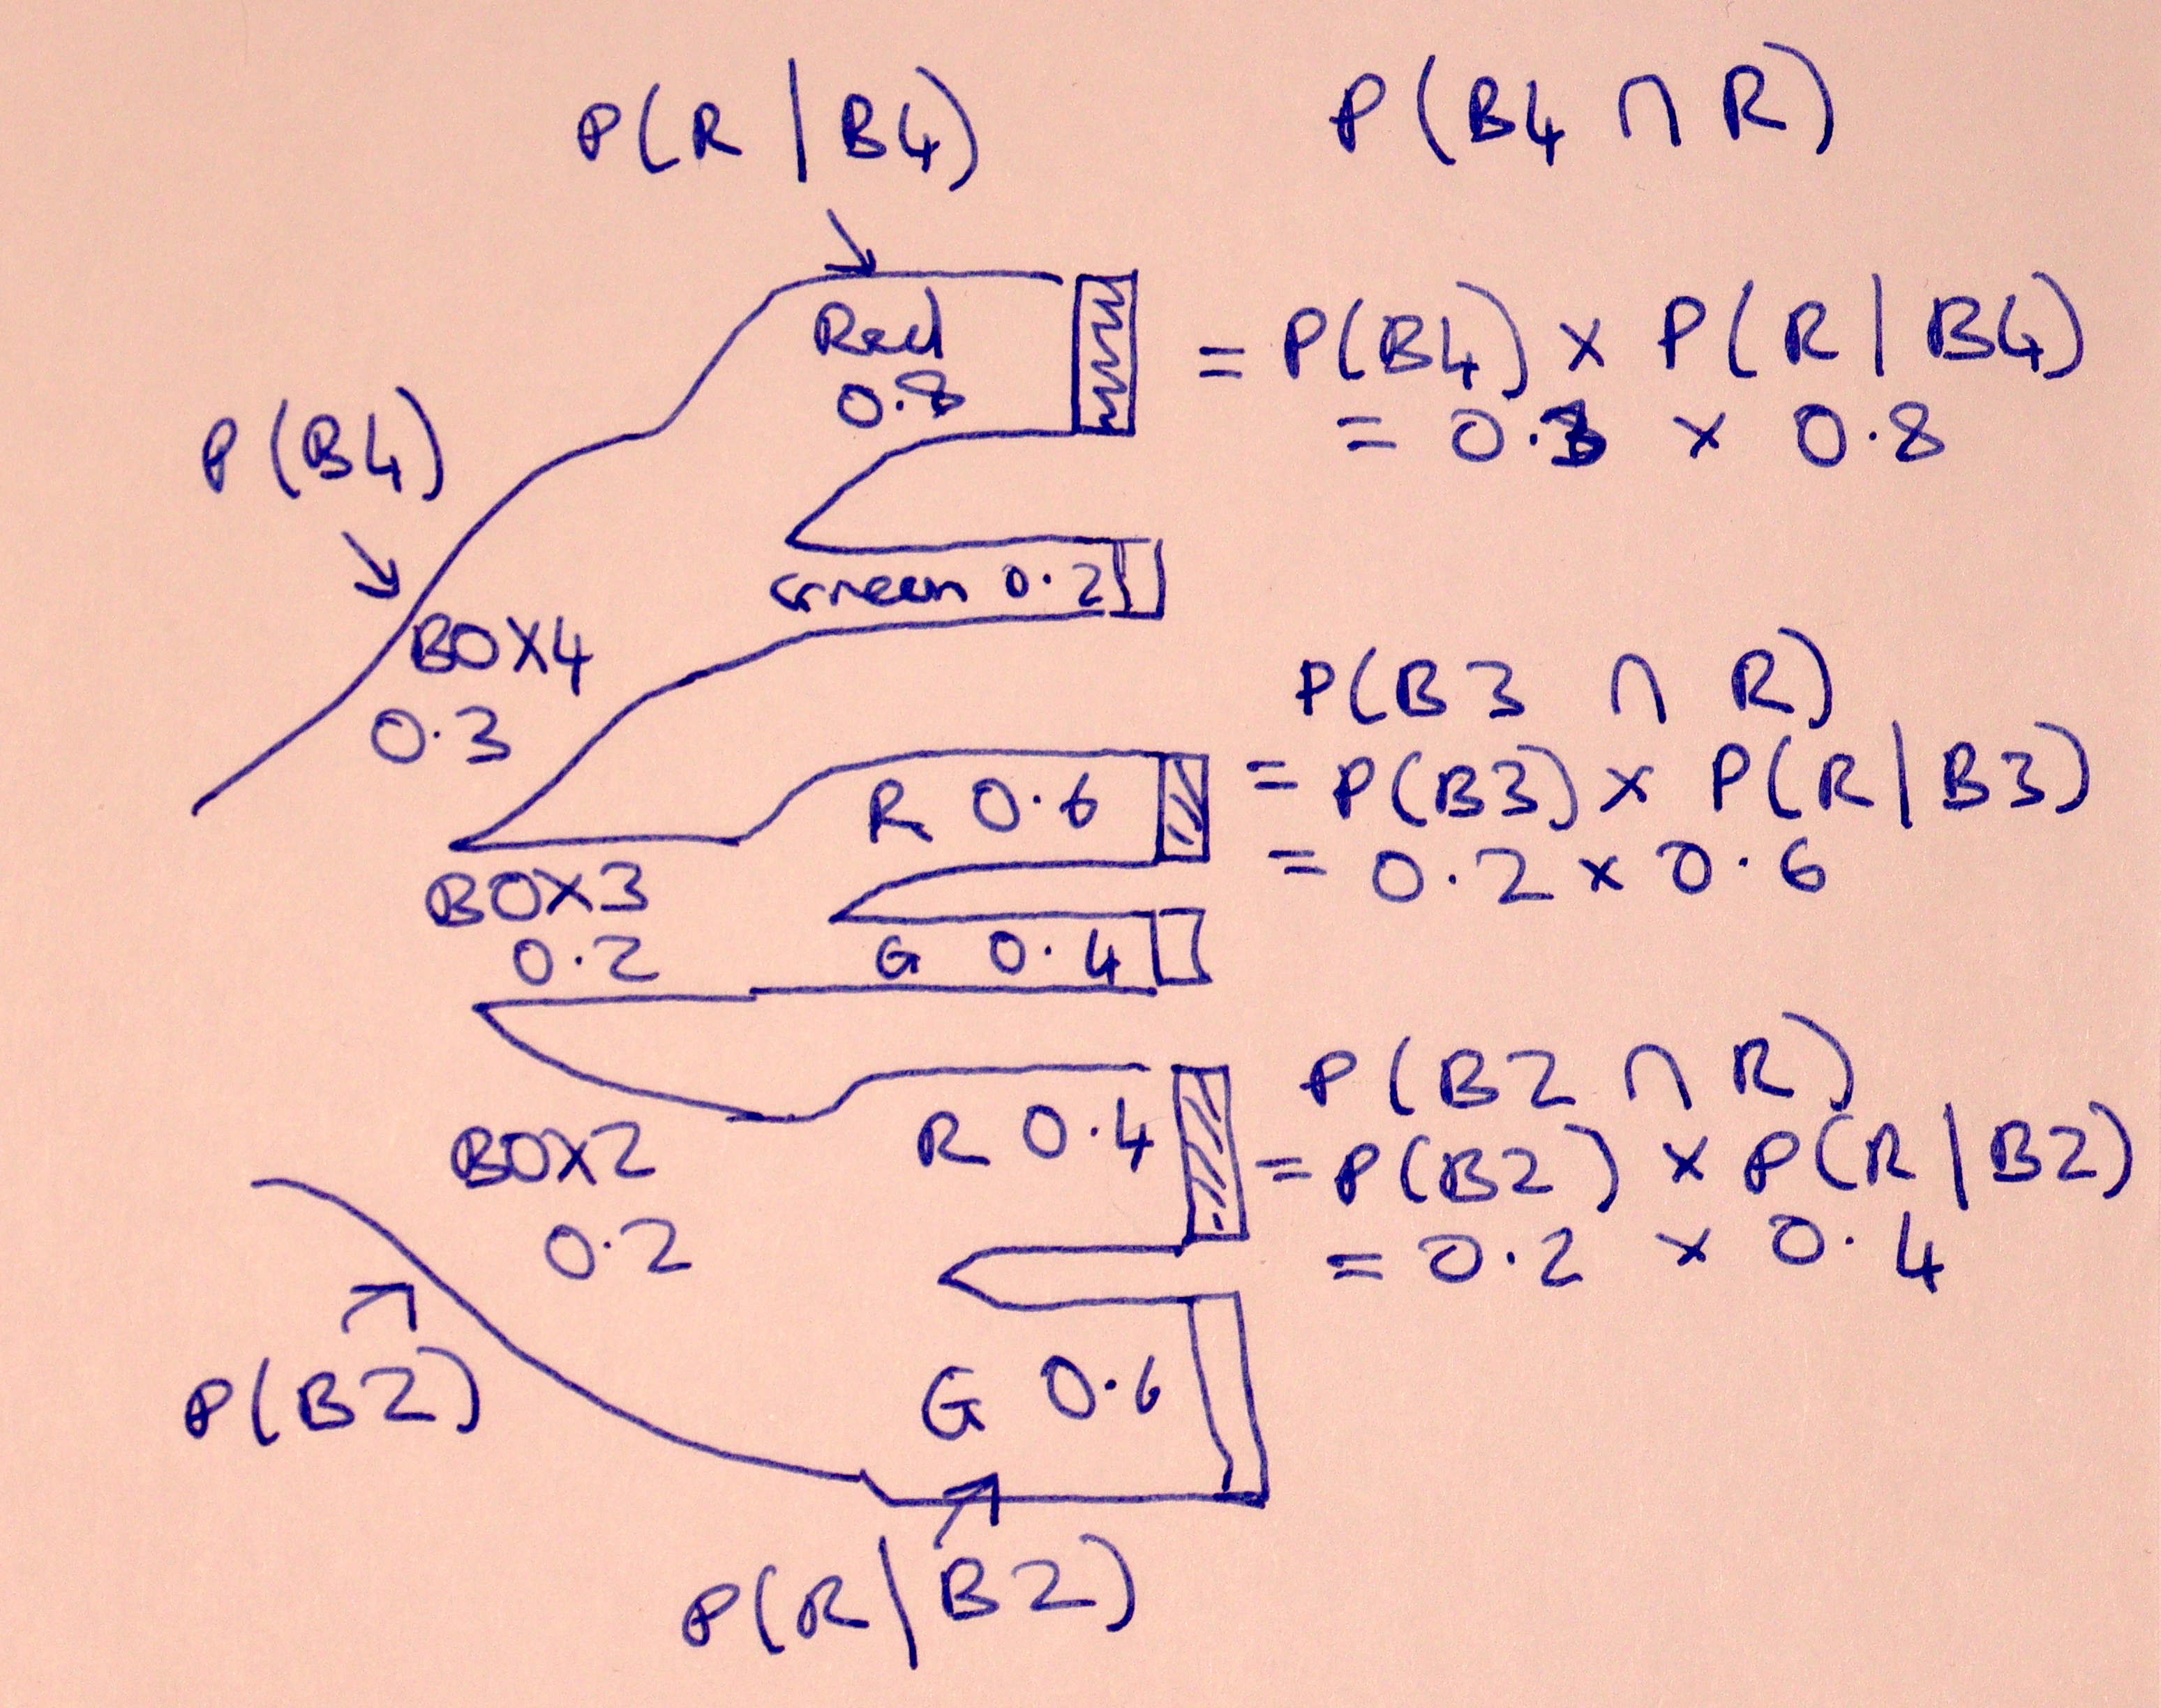 P(R | B4)
P(B4 ∩ R)
Red
0.8
= P(B4) × P(R | B4)
= 0.3 × 0.8
P(B4)
Green 0.2
BOX4
0.3
P(B3 ∩ R)
R 0.6
= P(B3) × P(R | B3)
= 0.2 × 0.6
BOX3
0.2
G 0.4
P(B2 ∩ R)
R 0.4
= P(B2) × P(R | B2)
= 0.2 × 0.4
BOX2
0.2
P(B2)
G 0.6
P(R | B2)